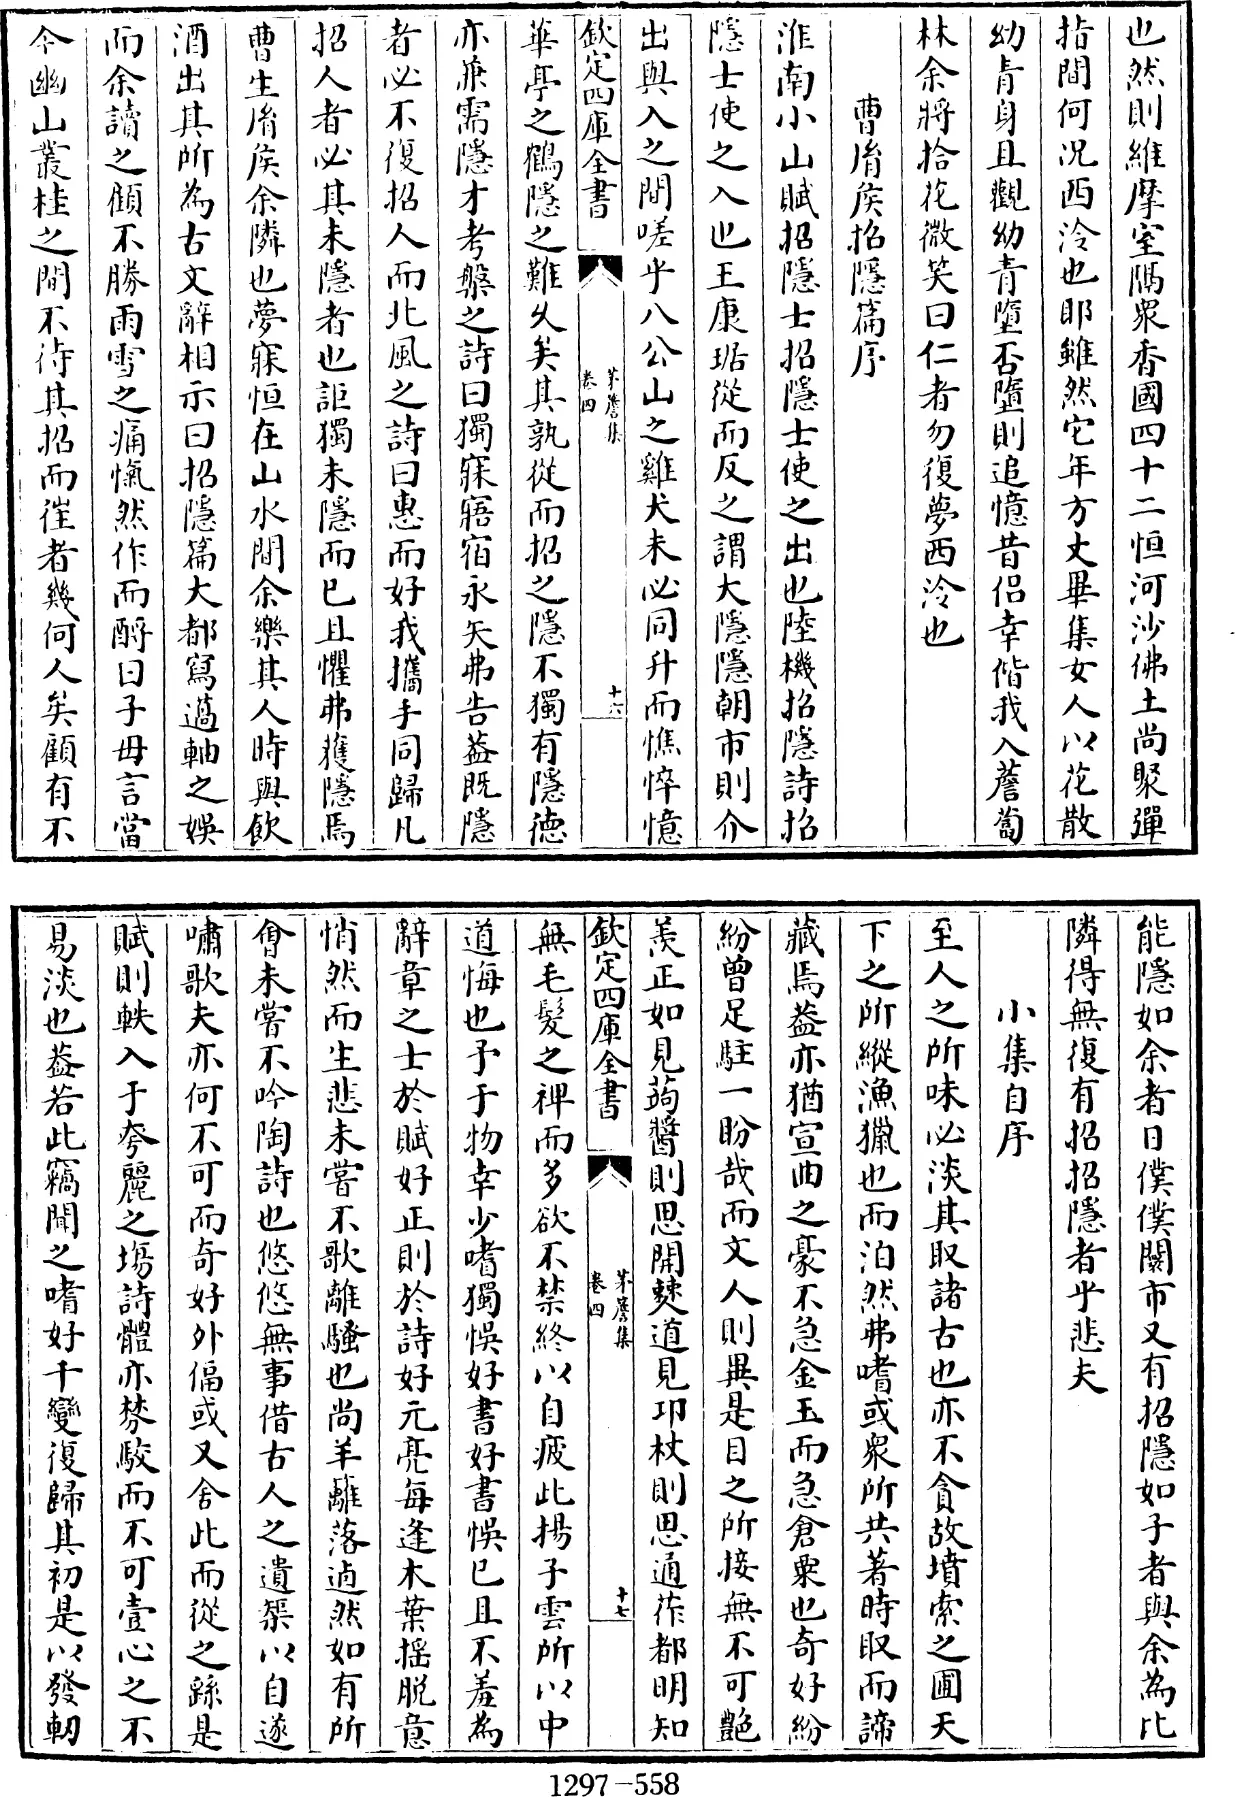 也然則維摩室隅衆香國四十二恒河沙佛土尚聚彈
指間何况西泠也耶雖然它年方丈畢集女人以花散
幼青身且觀幼青墮否墮則追憶昔侣幸偕我入薝蔔
林余將拾花微笑曰仁者勿復夢西泠也
曹㣧侯招隱篇序
淮南小山賦招隱士招隱士使之出也陸機招隱詩招
隱士使之入也王康琚從而反之謂大隱隱朝市則介
出與入之間嗟乎八公山之雞犬未必同升而憔悴憶
欽定四庫全書
茅簷集
卷四
十六
華亭之鶴隱之難久矣其孰從而招之隱不獨有隱德
亦兼需隱才考槃之詩曰獨寐寤宿永矢弗告葢既隱
者必不復招人而北風之詩曰惠而好我攜手同歸凡
招人者必其未隱者也詎獨未隱而已且懼弗獲隱焉
曹生㣧侯余隣也夢寐恒在山水間余樂其人時與飲
酒出其所為古文辭相示曰招隱篇大都寫薖軸之娛
而余讀之頎不勝雨雪之痛愾然作而酹曰子毋言當
今幽山叢桂之間不待其招而隺者幾何人矣顧有不
能隱如余者日僕僕闤市又有招隱如子者與余為比
隣得無復有招招隱者乎悲夫
小集自序
至人之所味必淡其取諸古也亦不貪故墳索之圃天
下之所縱漁獵也而泊然弗嗜或衆所共著時取而諦
藏焉葢亦猶宣曲之豪不急金玉而急倉粟也奇好紛
紛曾足駐一盼哉而文人則異是目之所接無不可艶
羡正如見蒟醬則思開僰道見邛杖則思通莋都明知
欽定四庫全書
茅簷集
卷四
十七
無毛髮之裨而多欲不禁終以自疲此揚子雲所以中
道悔也予于物幸少嗜獨悞好書好書悞已且不羞為
辭章之士於賦好正則於詩好元亮每逢木葉揺脱意
悄然而生悲未嘗不歌離騷也尚羊籬落逌然如有所
會未嘗不吟陶詩也悠悠無事借古人之遺榘以自遂
嘯歌夫亦何不可而奇好外偪或又舍此而從之繇是
賦則軼入于夸麗之塲詩體亦棼駮而不可壹心之不
易淡也葢若此竊聞之嗜好千變復歸其初是以發軔
1297-558